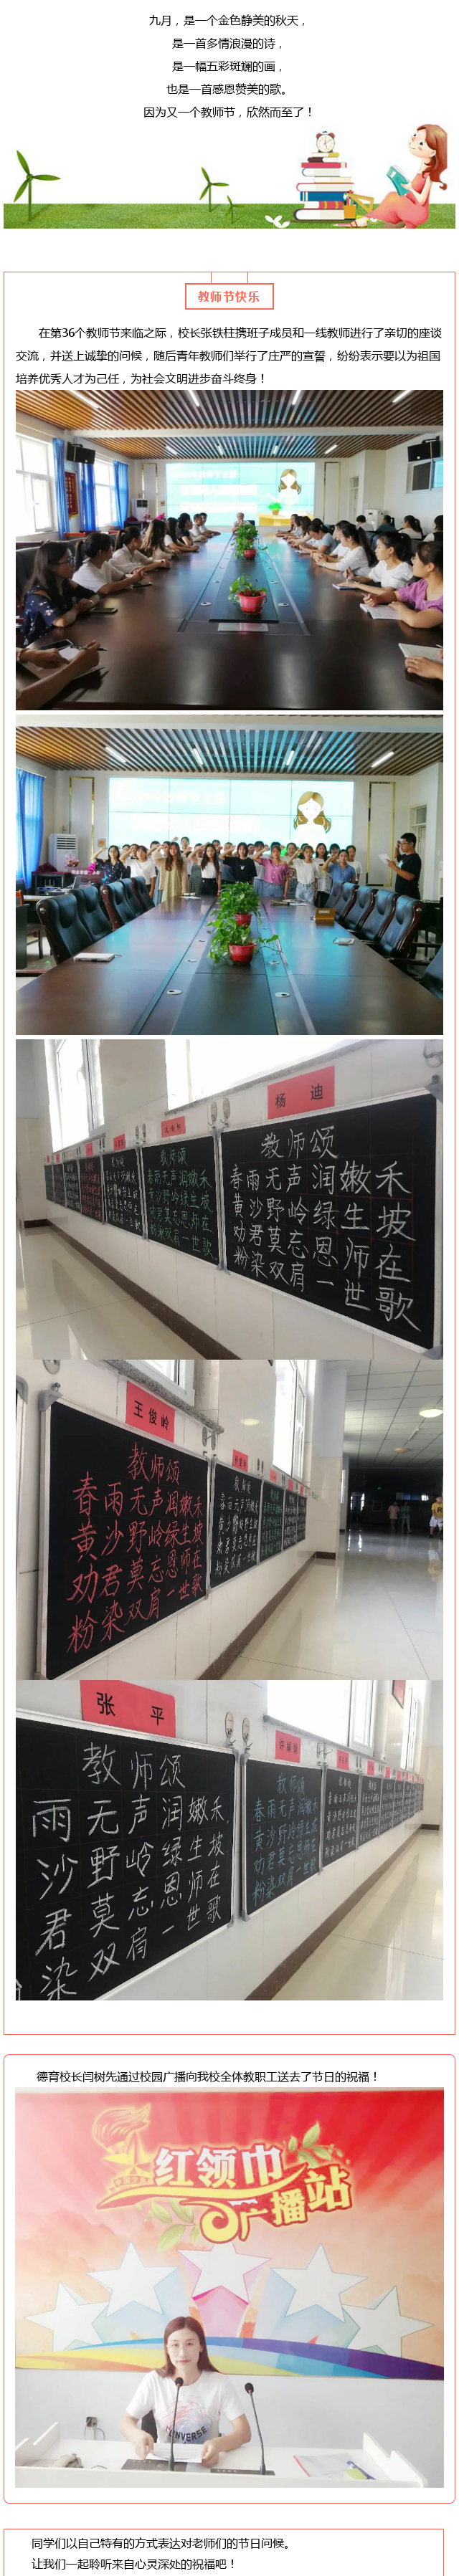 九月，是一个金色静美的秋天，
是一首多情浪漫的诗，
是一幅五彩斑斓的画，
也是一首感恩赞美的歌。
因为又一个教师节，欣然而至了！
教师节快乐
在第36个教师节来临之际，校长张铁柱携班子成员和一线教师进行了亲切的座谈
交流，并送上诚挚的问候，随后青年教师们举行了庄严的宣誓，纷纷表示要以为祖国
培养优秀人才为己任，为社会文明进步奋斗终身！
杨 迪
教师颂
春雨无声润嫩禾
黄沙野岭绿生坡
劝君莫忘恩师在
粉染双肩一世歌
教师颂
春雨无声润嫩禾
黄沙野岭绿生坡
劝君莫忘恩师在
粉染双肩一世歌
王俊岭
教师颂
春雨无声润嫩禾
黄沙野岭绿生坡
劝君莫忘恩师在
粉染双肩一世歌
张 平
教师颂
雨无声润嫩禾
沙野岭绿生坡
君莫忘恩师在
染双肩一世歌
教师颂
春雨无声润嫩禾
黄沙野岭绿生坡
劝君莫忘恩师在
粉染双肩一世歌
德育校长闫树先通过校园广播向我校全体教职工送去了节日的祝福！
红领巾
广播站
同学们以自己特有的方式表达对老师们的节日问候。
让我们一起聆听来自心灵深处的祝福吧！